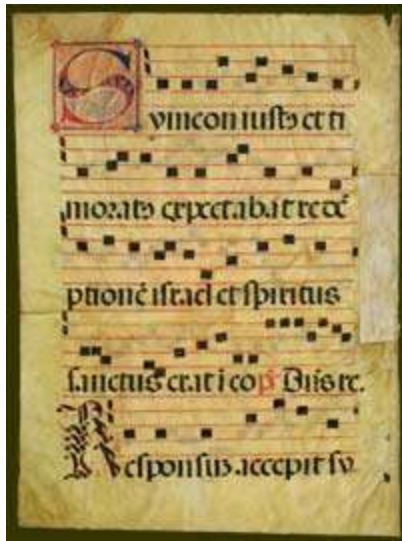 Symeon iustꝰ et ti
moratꝰ expectabat redē
ptionē israel et spiritus
sanctus erat i eo Dñs re.
Responsuz accepit sy